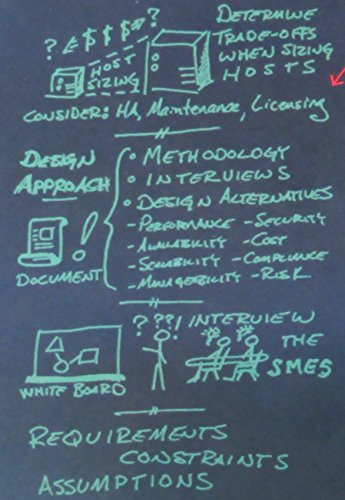 ? ← $ $ $ ?
HOST
SIZING
DETERMINE
TRADE-OFFS
WHEN SIZING
HOSTS
CONSIDER: HA, Maintenance, Licensing
DESIGN
APPROACH
DOCUMENT
• METHODOLOGY
• INTERVIEWS
• DESIGN ALTERNATIVES
-PERFORMANCE -SECURITY
-AVAILABILITY -COST
-SCALABILITY -COMPLIANCE
-MANAGEABILITY -RISK
WHITE BOARD
? ? ? ! INTERVIEW
THE
SMES
REQUIREMENTS
CONSTRAINTS
ASSUMPTIONS